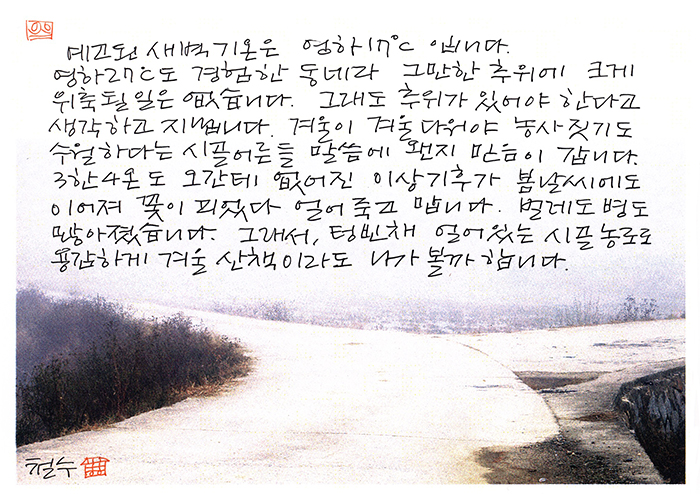 예고된 새벽기온은 영하17℃ 입니다.
영하27℃도 경험한 동네라 그만한 추위에 크게
위축될 일은 없습니다. 그래도 추위가 있어야 한다고
생각하고 지냅니다. 겨울이 겨울다워야 농사짓기도
수월하다는 시골어른들 말씀에 왠지 믿음이 갑니다.
3한4온도 오간데 없어진 이상기후가 봄날씨에도
이어져 꽃이 피었다 얼어죽고 맙니다. 벌레도 병도
많아졌습니다. 그래서, 텅빈채 얼어있는 시골농로로
용감하게 겨울 산책이라도 나가 볼까 합니다.
철수